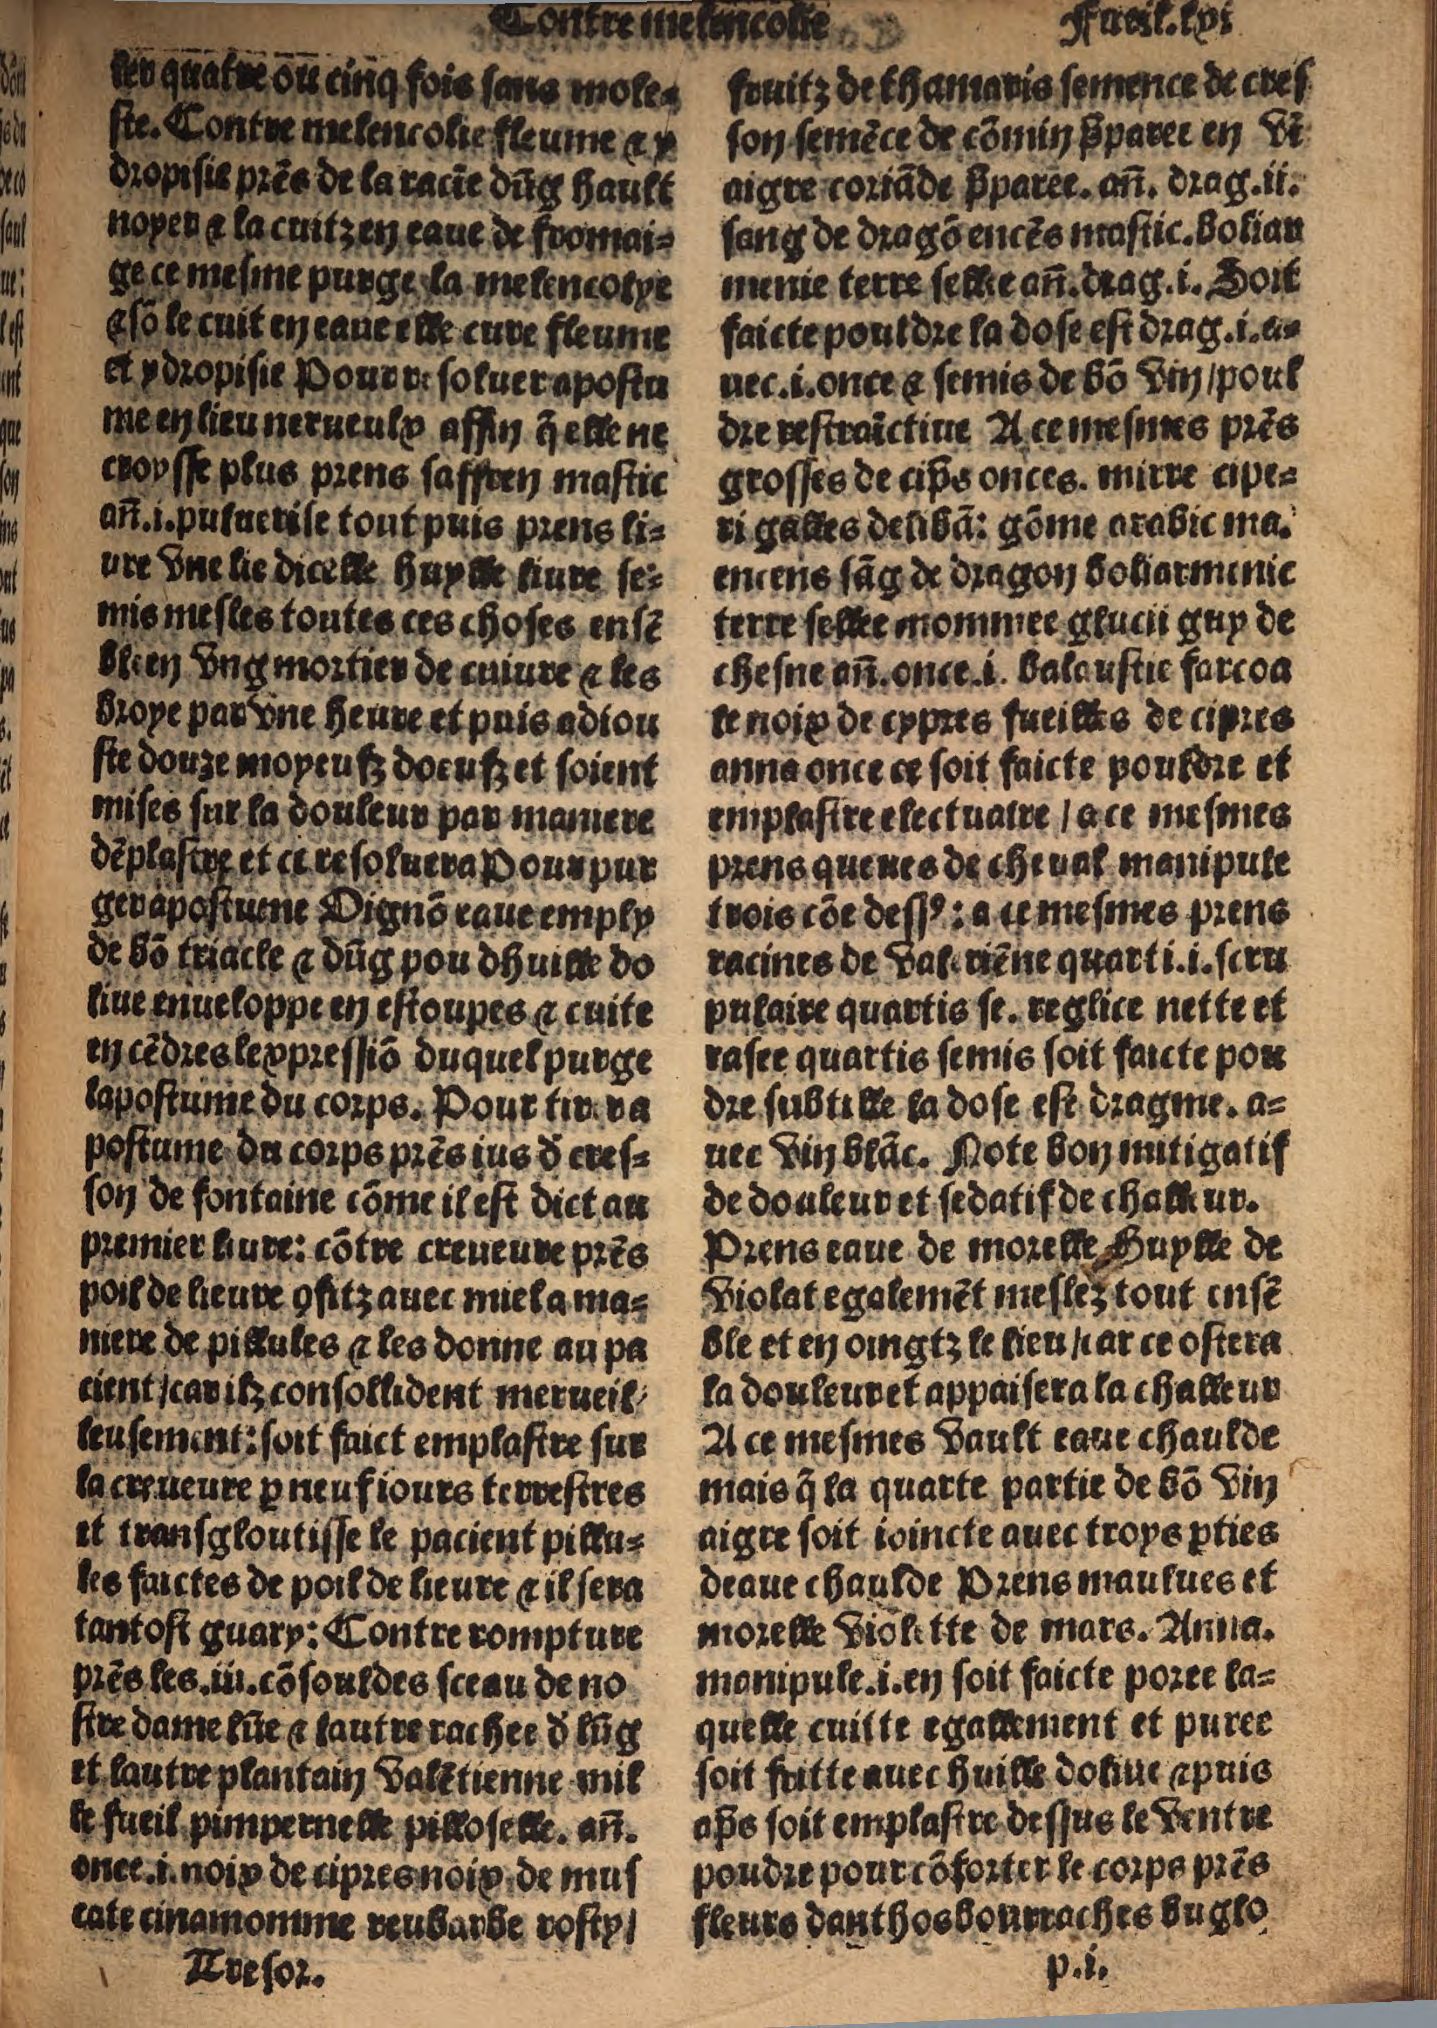 Contre melencolie
Fueil.lvi
ler quatre ou cinq fois sans mole-
ste. Contre melencolie fleume & y
dropisie prẽs de la raciẽ dũg hault
noyer & la cuitz en eaue de fromai-
ge ce mesme purge la melencolye
& sõ le cuit en eaue elle cure fleume
et ydropisie Pour resoluer apostu
me en lieu nerueulx affin q̃ elle ne
croysse plus prens saffren mastic
añ.i.puluerise tout puis prens li-
ure vne lie dicelle huylle liure se-
mis mesles toutes ces choses ensẽ
ble en vng mortier de cuiure & les
broye par vne heure et puis adiou
ste douze moyeufz doeufz et soient
mises sur la douleur par maniere
dẽplastre et ce resoluera Pour pur
ger apostume Oignõ caue emply
de bõ triacle & dũg pou dhuille do
liue enueloppe en estoupes & cuite
en cẽdres lexpressiõ duquel purge
lapostume du corps. Pour tirer a
postume du corps prẽs ius d̃ cres-
son de fontaine cõme il est dict au
premier liure: cõtre creueure prẽs
poil de lieure ꝯfitz auec miel a ma-
niere de pillules & les donne au pa
cient/car ilz consollident merueil
leusement: soit faict emplastre sur
la creueure ꝑ neuf iours terrestres
et transgloutisse le pacient pillu-
les faictes de poil de lieure & il sera
tantost guary: Contre rompture
prẽs les.iii.cõsouldes sceau de no
stre dame lũe & lautre rachee d̃ lũg
et lautre plantain valẽtienne mil
le fueil pimpernelle pilloselle. añ.
once.i.noix de cipres noix de mus
cate cinamomme reubarbe rosty/
Tresor.
fruitz de thamaris semence de cres
son semẽce de cõmin p̃paree en vi
aigre coriãde p̃paree. añ. drag.ii.
sang de dragõ encẽs mastic.boliar
menie terre sellee añ.drag.i. Soit
faicte pouldre la dose est drag.i.a-
uec.i.once & semis de bõ vin/poul
dre restraĩctiue A ce mesmes prẽs
grosses de cip̃s onces. mirre cipe-
ri galles delibã: gõme arabic ma.
encens sãg de dragon boliarmenic
terre sellee mommee glucii guy de
chesne añ.once.i. balaustie sarcoa
le noix de cypres fueilles de cipres
anna once ce soit faicte pouldre et
emplastre electuaire / a ce mesmes
prens queues de cheual manipule
trois cõe dessꝰ: a ce mesmes prens
racines de valeriẽne quarti.i.scru
pulaire quartis se. reglice nette et
rasee quartis semis soit faicte pou
dre subtille la dose est dragme. a-
uec vin blãc. Note bon mitigatif
de douleur et sedatif de challeur.
Prens eaue de morelle Huylle de
violat egalemẽt meslez tout ensẽ
ble et en oingtz le lieu/car ce ostera
la douleur et appaisera la challeur
A ce mesmes vault eaue chaulde
mais q̃ la quarte partie de bõ vin
aigre soit ioincte auec troys ꝑties
deaue chaulde Prens maulues et
morelle violette de mars. Anna.
manipule.i.en soit faicte poree la-
quelle cuitte egallement et puree
soit fritte auec huille doliue & puis
ap̃s soit emplastre dessus le ventre
poudre pour cõforter le corps prẽs
fleurs danthos bourraches buglo
p.i.